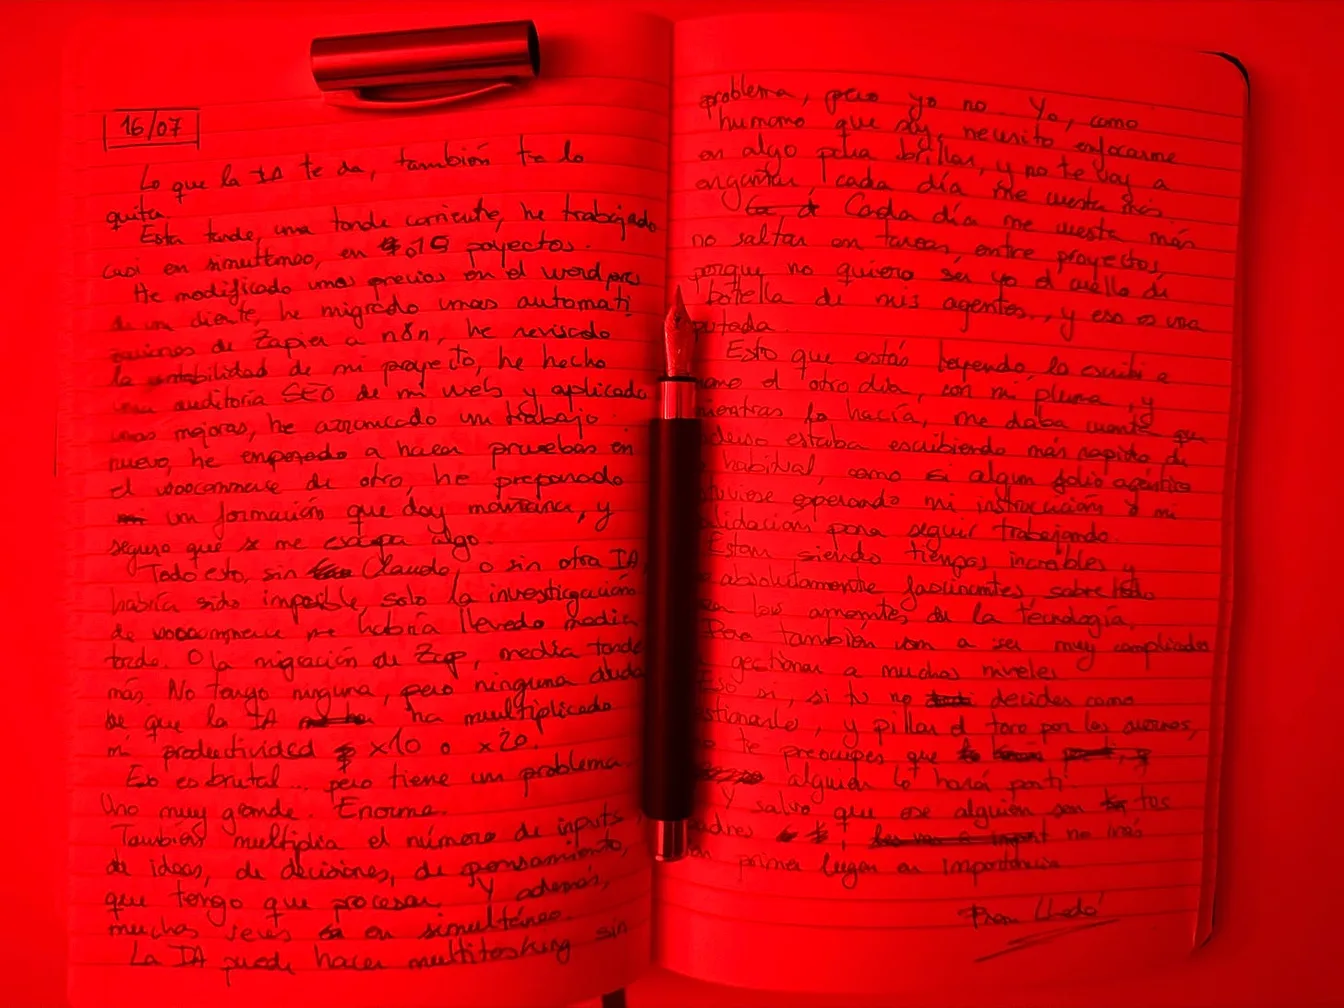 16/07
Lo que la IA te da, también te lo
quita
Esta tarde, una tarde corriente, he trabajado
casi en simultáneo, en 10 poyectos.
He modificado unos precios en el wordpres
de un cliente, he migrado unas automati
zaciones de Zapier a n8n, he revisado
la contabilidad de mi proyecto, he hecho
una auditoría SEO de mi web y aplicado
unas mejoras, he arrancado un trabajo
nuevo, he empezado a hacer pruebas en
el woocommerce de otro, he preparado
un formación que doy mañana, y
seguro que se me escapa algo.
Todo esto, sin Claude, o sin otra IA
habría sido imposible, solo la investigación
de woocommerce me habría llevado media
tarde. O la migración de Zap, media tarde
más. No tengo ninguna, pero ninguna duda
de que la IA ha multiplicado
mi productividad x10 o x20.
Eso es brutal... pero tiene un problema.
Uno muy grande. Enorme.
También multiplica el número de inputs,
de ideas, de decisiones, de pensamiento,
que tengo que procesar. Y además,
muchas veces en simultáneo.
La IA puede hacer multitasking sin
problema, pero yo no. Yo, como
humano que soy, necesito enfocarme
en algo para brillar, y no te voy a
engañar, cada día me cuesta más.
Cada día me cuesta más
no saltar en tareas, entre proyectos,
porque no quiero ser yo el cuello de
botella de mis agentes.., y eso es una
putada.
Esto que estás leyendo, lo escribí a
mano el otro día, con mi pluma, y
mientras lo hacía, me daba cuenta que
incluso estaba escribiendo más rapido de
lo habitual, como si algun folio agentico
estuviese esperando mi instrucción o mi
validacion para seguir trabajando.
Estan siendo tiempos increibles y
absolutamente fascinantes, sobre todo
para los amantes de la tecnología.
Pero también van a ser muy complicados
de gestionar a muchos niveles
Eso si, si tu no decides como
gestionarlo, y pillar el toro por los cuernos,
no te preocupes que
alguien lo hará por ti
Y salvo que ese alguien sean tus
padres no irás
en primer lugar en importancia
Fran Lledó